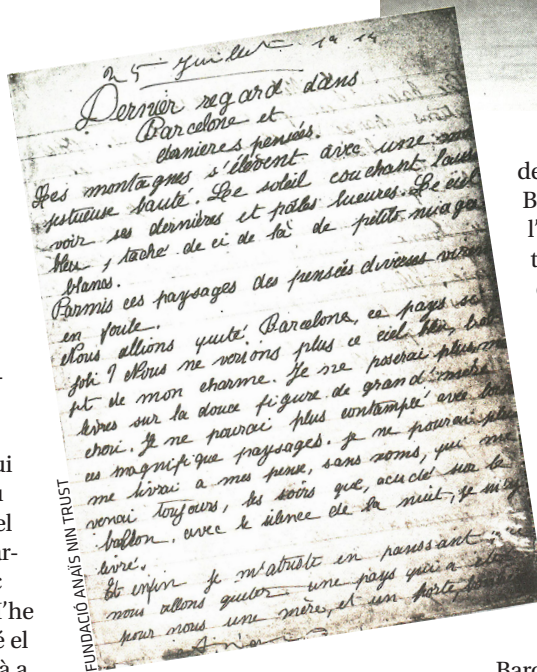 25 Juillet 1914
Dernier regard dans
Barcelone et
dernieres pensées.
Les montagnes s'élèvent avec une
jestueuse bauté. Le soleil couchant
voir ses dernières et pâles lueures. Le ciel
bleu, taché de ci de là de petits nuages
blancs.
Parmis ces paysages des pensées diverses
en foule.
Nous allions quité Barcelone, ce pays si
joli ? Nous ne verions plus ce ciel bleu,
et de mon charme. Je ne poserai plus
levres sur la douce figure de grand'mère
cheri. Je ne pourai plus contamplé avec
ces magnifique paysages. Je ne pourai plus
me livrai a mes pense, sans noms, qui me
venai toujours, les soirs que, acudé sur le
ballon, avec le silence de la nuit, je
livré.
Et enfin je m'atriste en panssant
nous allons quiter une pays qui a
pour nous une mère, et un porte
FUNDACIÓ ANAÏS NIN TRUST
de
B
l'
t
ui
u
el
ar-
c
l'he
é el
à a
Barc